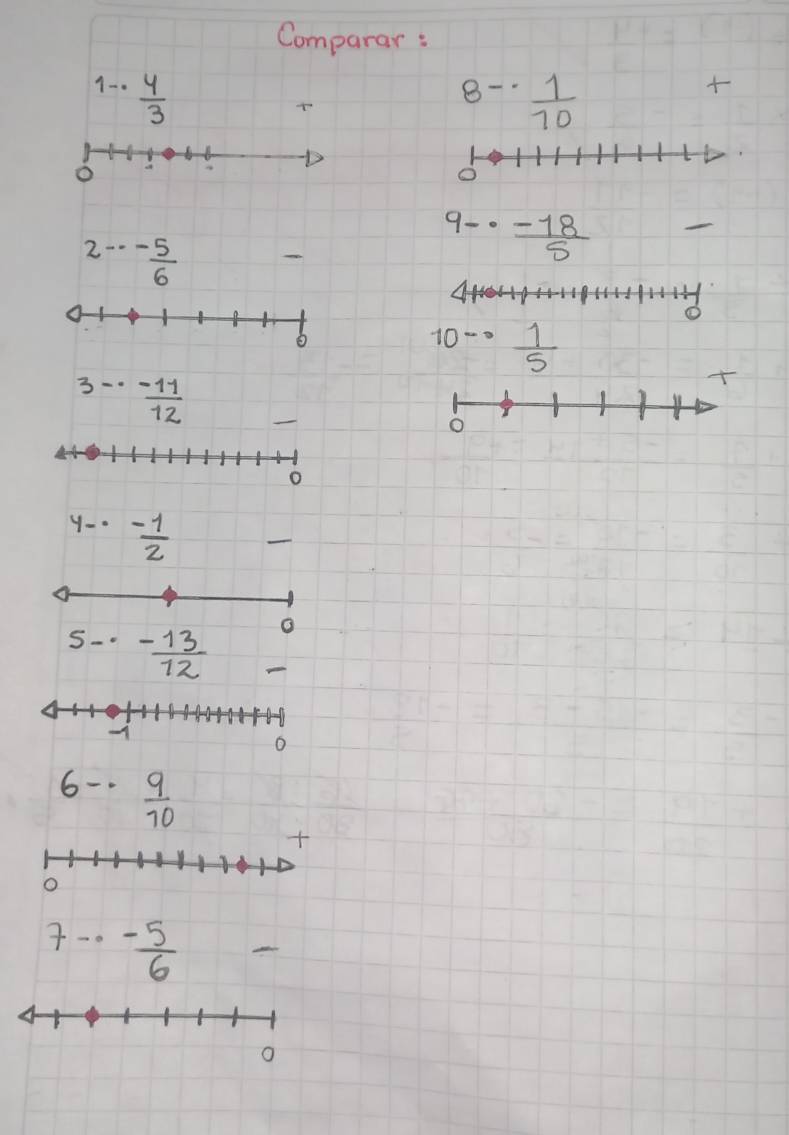 Comparar:
1-. 4/3 +
0
2-. -5/6 -
0
3-. -11/12 -
0
4-. -1/2 -
0
5-. -13/12 -
-1 0
6-. 9/10
+
0
7-. -5/6 -
0
8-. 1/10 +
0
9-. -18/5 -
0
10-. 1/5
+
0